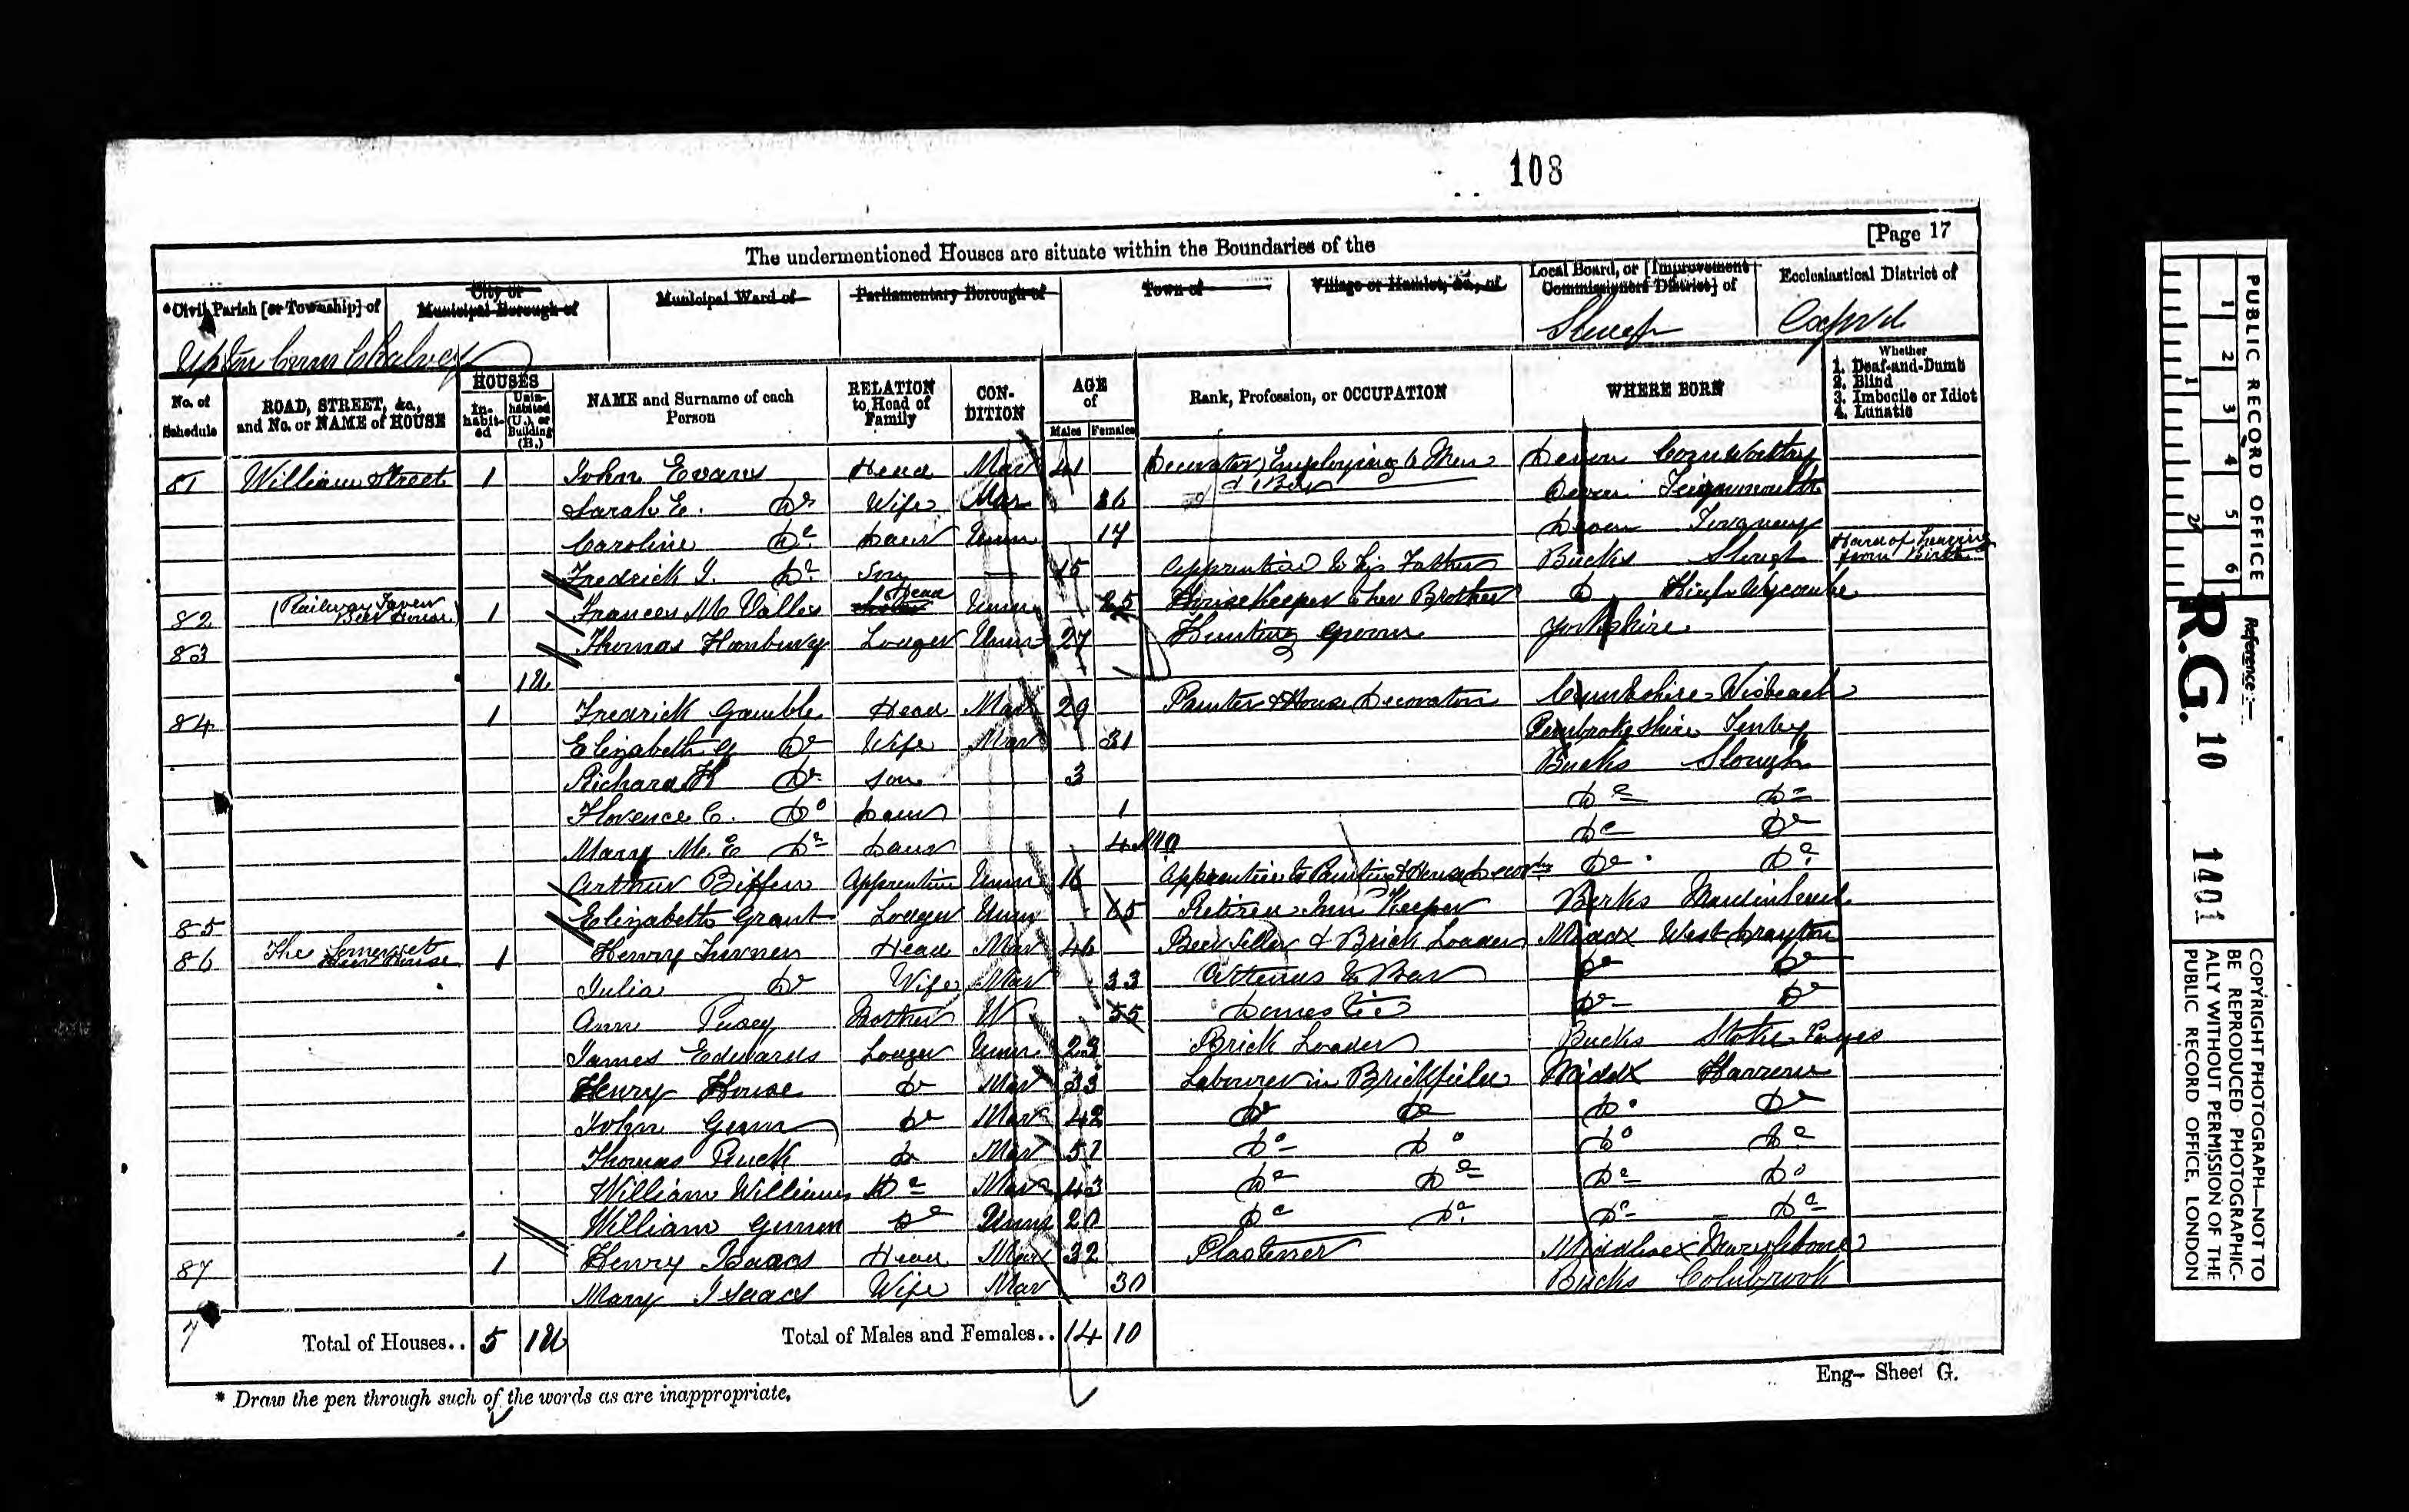 108
[Page 17
The undermentioned Houses are situate within the Boundaries of the
*Civil Parish [or Township] of
City or Municipal Borough of
Municipal Ward of
Parliamentary Borough of
Town of
Village or Hamlet, &c., of
Local Board, or [Improvement Commissioners District] of
Ecclesiastical District of
Upton Cum Chalvey
No. of Schedule
ROAD, STREET, &c., and No. or NAME of HOUSE
HOUSES
In-habit-ed
Unin-habited (U.) or Building (B.)
NAME and Surname of each Person
RELATION to Head of Family
CON-DITION
AGE of
Males Females
Rank, Profession, or OCCUPATION
WHERE BORN
Whether
1. Deaf-and-Dumb
2. Blind
3. Imbecile or Idiot
4. Lunatic
81 William Street 1 John Evans Head Mar 41 Decorator Employing 6 Men Devon Cornworthy
& 1 Boy
Sarah E. Do Wife Mar 36 Devon Teignmouth
Caroline Do Daur Unm 17 Devon Torquay
Fredrick J. Do Son — 15 Apprentice to his Father Bucks Slough Hard of hearing from Birth
82 (Railway Tavern Beer House) 1 Frances M Valler Head Unm 25 HouseKeeper to her Brother Do High Wycombe
83 Thomas Hanbury Lodger Unm 27 Hunting Groom Yorkshire
1U
84 1 Fredrick Gamble Head Mar 29 Painter & House Decorator Cambshire Wisbeach
Elizabeth G Do Wife Mar 31 Pembrokeshire Tenby
Richard H Do Son 3 Bucks Slough
Florence C. Do Daur 1 Do Do
Mary M. E Do Daur 4 mo Do Do
Arthur Biffen Apprentice Unm 16 Apprentice to Painting & House Decorating Do Do
85 Elizabeth Grant Lodger Unm 65 Retired Inn Keeper Berks Maidenhead
86 The Somerset Beer House 1 Henry Turner Head Mar 46 Beer Seller & Brick Loader Middx West Drayton
Julia Do Wife Mar 33 Attends to Bar Do Do
Ann Pusey Mother W 55 Domestic Do Do
James Edwards Lodger Unm 23 Brick Loader Bucks Stoke Poges
Henry House Do Mar 33 Labourer in Brickfield Middx Harrow
John Gunn Do Mar 42 Do Do Do Do
Thomas Buck Do Mar 51 Do Do Do Do
William Williams Do Mar 43 Do Do Do Do
William Do Unm 20 Do Do Do Do
87 1 Henry Isaacs Head Mar 32 Plasterer Middlesex Marylebone
Mary Isaacs Wife Mar 30 Bucks Colnbrook
7 Total of Houses.. 5 1U Total of Males and Females.. 14 10
Eng- Sheet G.
* Draw the pen through such of the words as are inappropriate.
PUBLIC RECORD OFFICE
1 2 3 4 5 6
1 2
Reference:—
R.G. 10 1401
COPYRIGHT PHOTOGRAPH—NOT TO BE REPRODUCED PHOTOGRAPHIC-ALLY WITHOUT PERMISSION OF THE PUBLIC RECORD OFFICE, LONDON